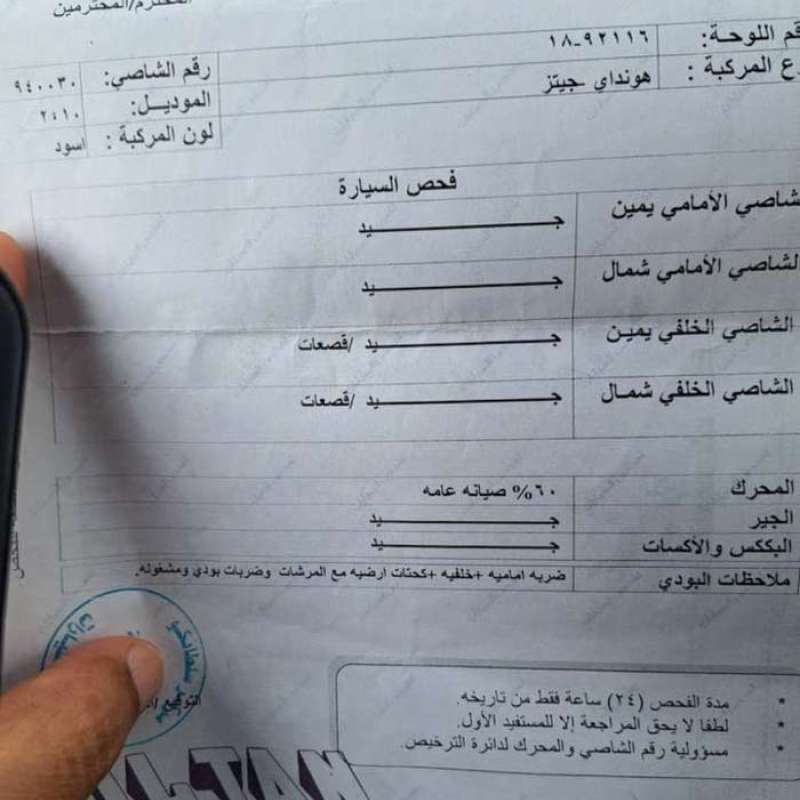 المحترم/المحترمين
قم اللوحة: ١٨-٩٢١١٦
ع المركبة : هونداي جيتز
رقم الشاصي: ٩٤٠٠٣٠
الموديـل: ٢٠١٠
لون المركبة : اسود
فحص السيارة
شاصي الأمامي يمين جـــــــيد
لشاصي الأمامي شمال جـــــــيد
الشاصي الخلفي يمين جـــــــيد /قصعات
الشاصي الخلفي شمال جـــــــيد /قصعات
المحرك ٦٠% صيانه عامه
الجير جـــــــيد
البككس والأكسات جـــــــيد
ملاحظات البودي ضربه اماميه +خلفيه +كحتات ارضيه مع المرشات وضربات بودي ومشغوله.
* مدة الفحص (٢٤) ساعة فقط من تاريخه.
* لطفا لا يحق المراجعة إلا للمستفيد الأول.
* مسؤولية رقم الشاصي والمحرك لدائرة الترخيص.
التوقيع
LTAN